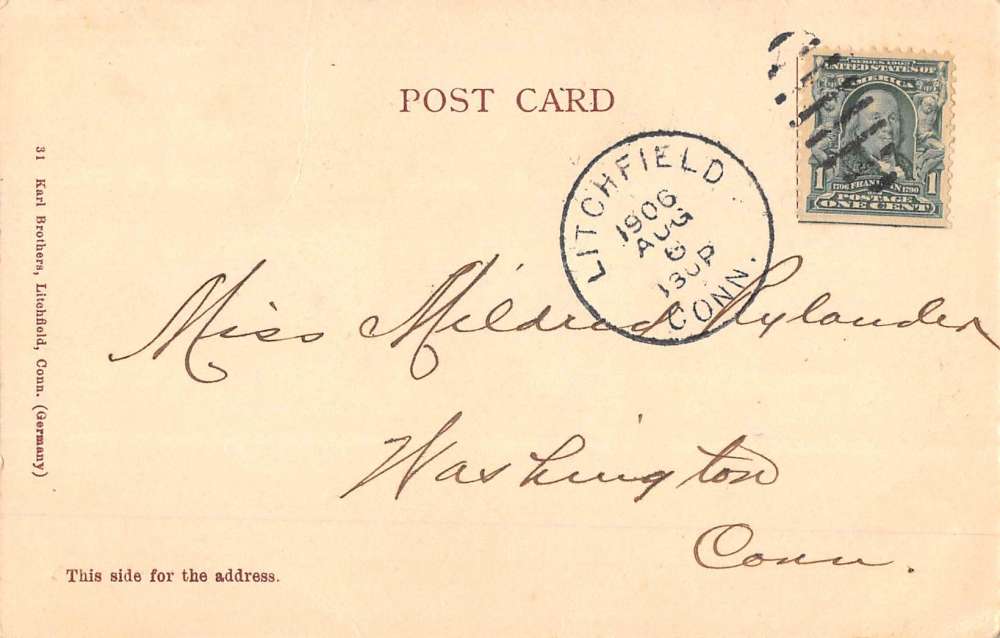 POST CARD
SERIES 1902
UNITED STATES OF
AMERICA
1 1706 FRANKLIN 1790 1
POSTAGE
ONE CENT
LITCHFIELD
1906
AUG
130P
CONN.
31 Karl Brothers, Litchfield, Conn. (Germany)
Miss Mildred Rylander
Washington
Conn.
This side for the address.